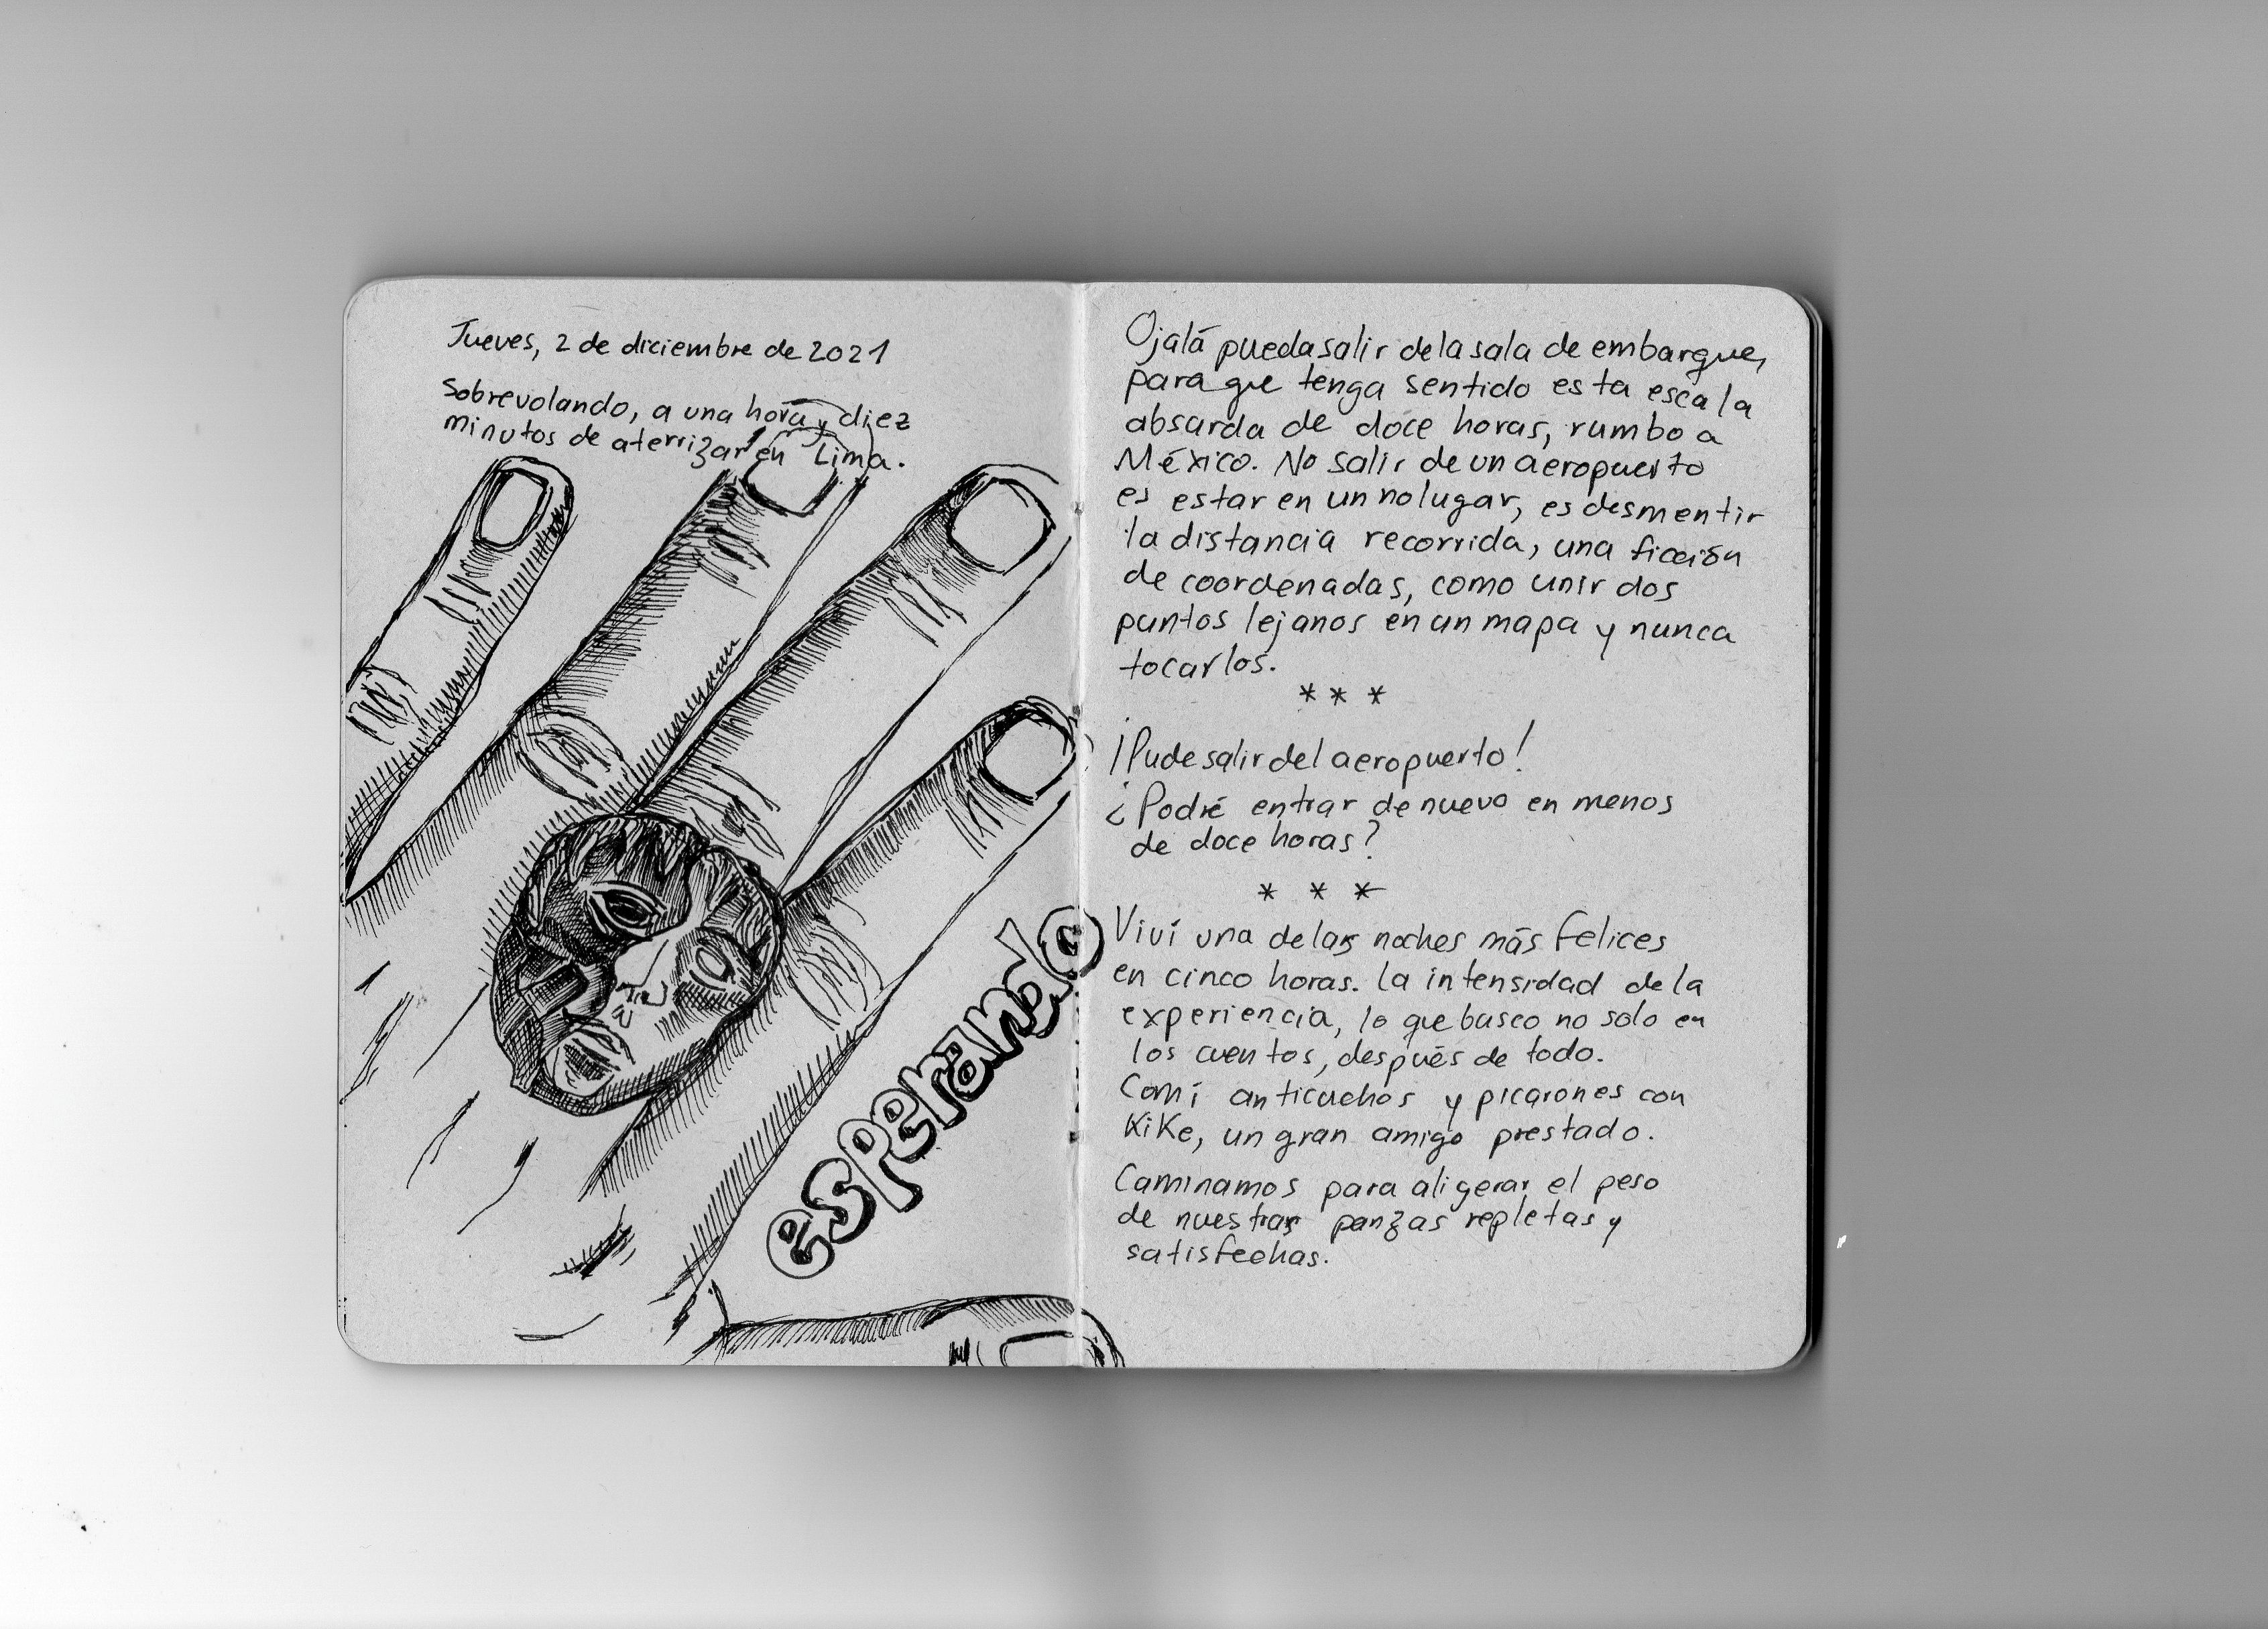 Jueves, 2 de diciembre de 2021
Sobrevolando, a una hora y diez
minutos de aterrizar en Lima.
esperando
Ojalá pueda salir de la sala de embarque,
para que tenga sentido esta escala
absurda de doce horas, rumbo a
México. No salir de un aeropuerto
es estar en un no lugar, es desmentir
la distancia recorrida, una ficción
de coordenadas, como unir dos
puntos lejanos en un mapa y nunca
tocarlos.
* * *
¡Pude salir del aeropuerto!
¿Podré entrar de nuevo en menos
de doce horas?
* * *
Viví una de las noches más felices
en cinco horas. La intensidad de la
experiencia, lo que busco no solo en
los cuentos, después de todo.
Comí anticuchos y picarones con
Kike, un gran amigo prestado.
Caminamos para aligerar el peso
de nuestras panzas repletas y
satisfechas.